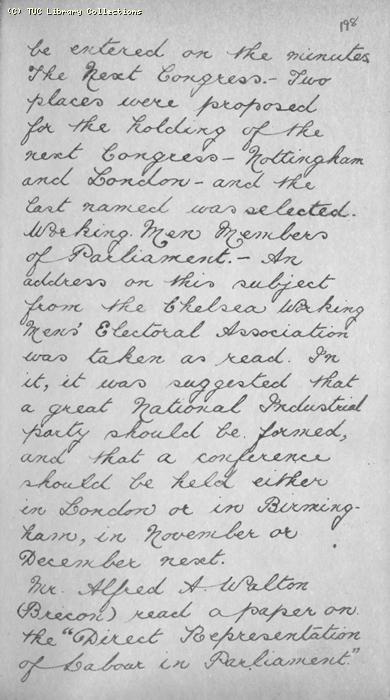 (C) TUC Library Collections
198
be entered on the minutes
The Next Congress.- Two
places were proposed
for the holding of the
next Congress - Nottingham
and London - and the
last named was selected.
Working Men Members
of Parliament. - An
address on this subject
from the Chelsea Working
Mens' Electoral Association
was taken as read. In
it, it was suggested that
a great National Industrial
party should be formed,
and that a conference
should be held either
in London or in Birming-
ham, in November or
December next.
Mr. Alfred A. Walton
(Brecon) read a paper on
the "Direct Representation
of Labour in Parliament."